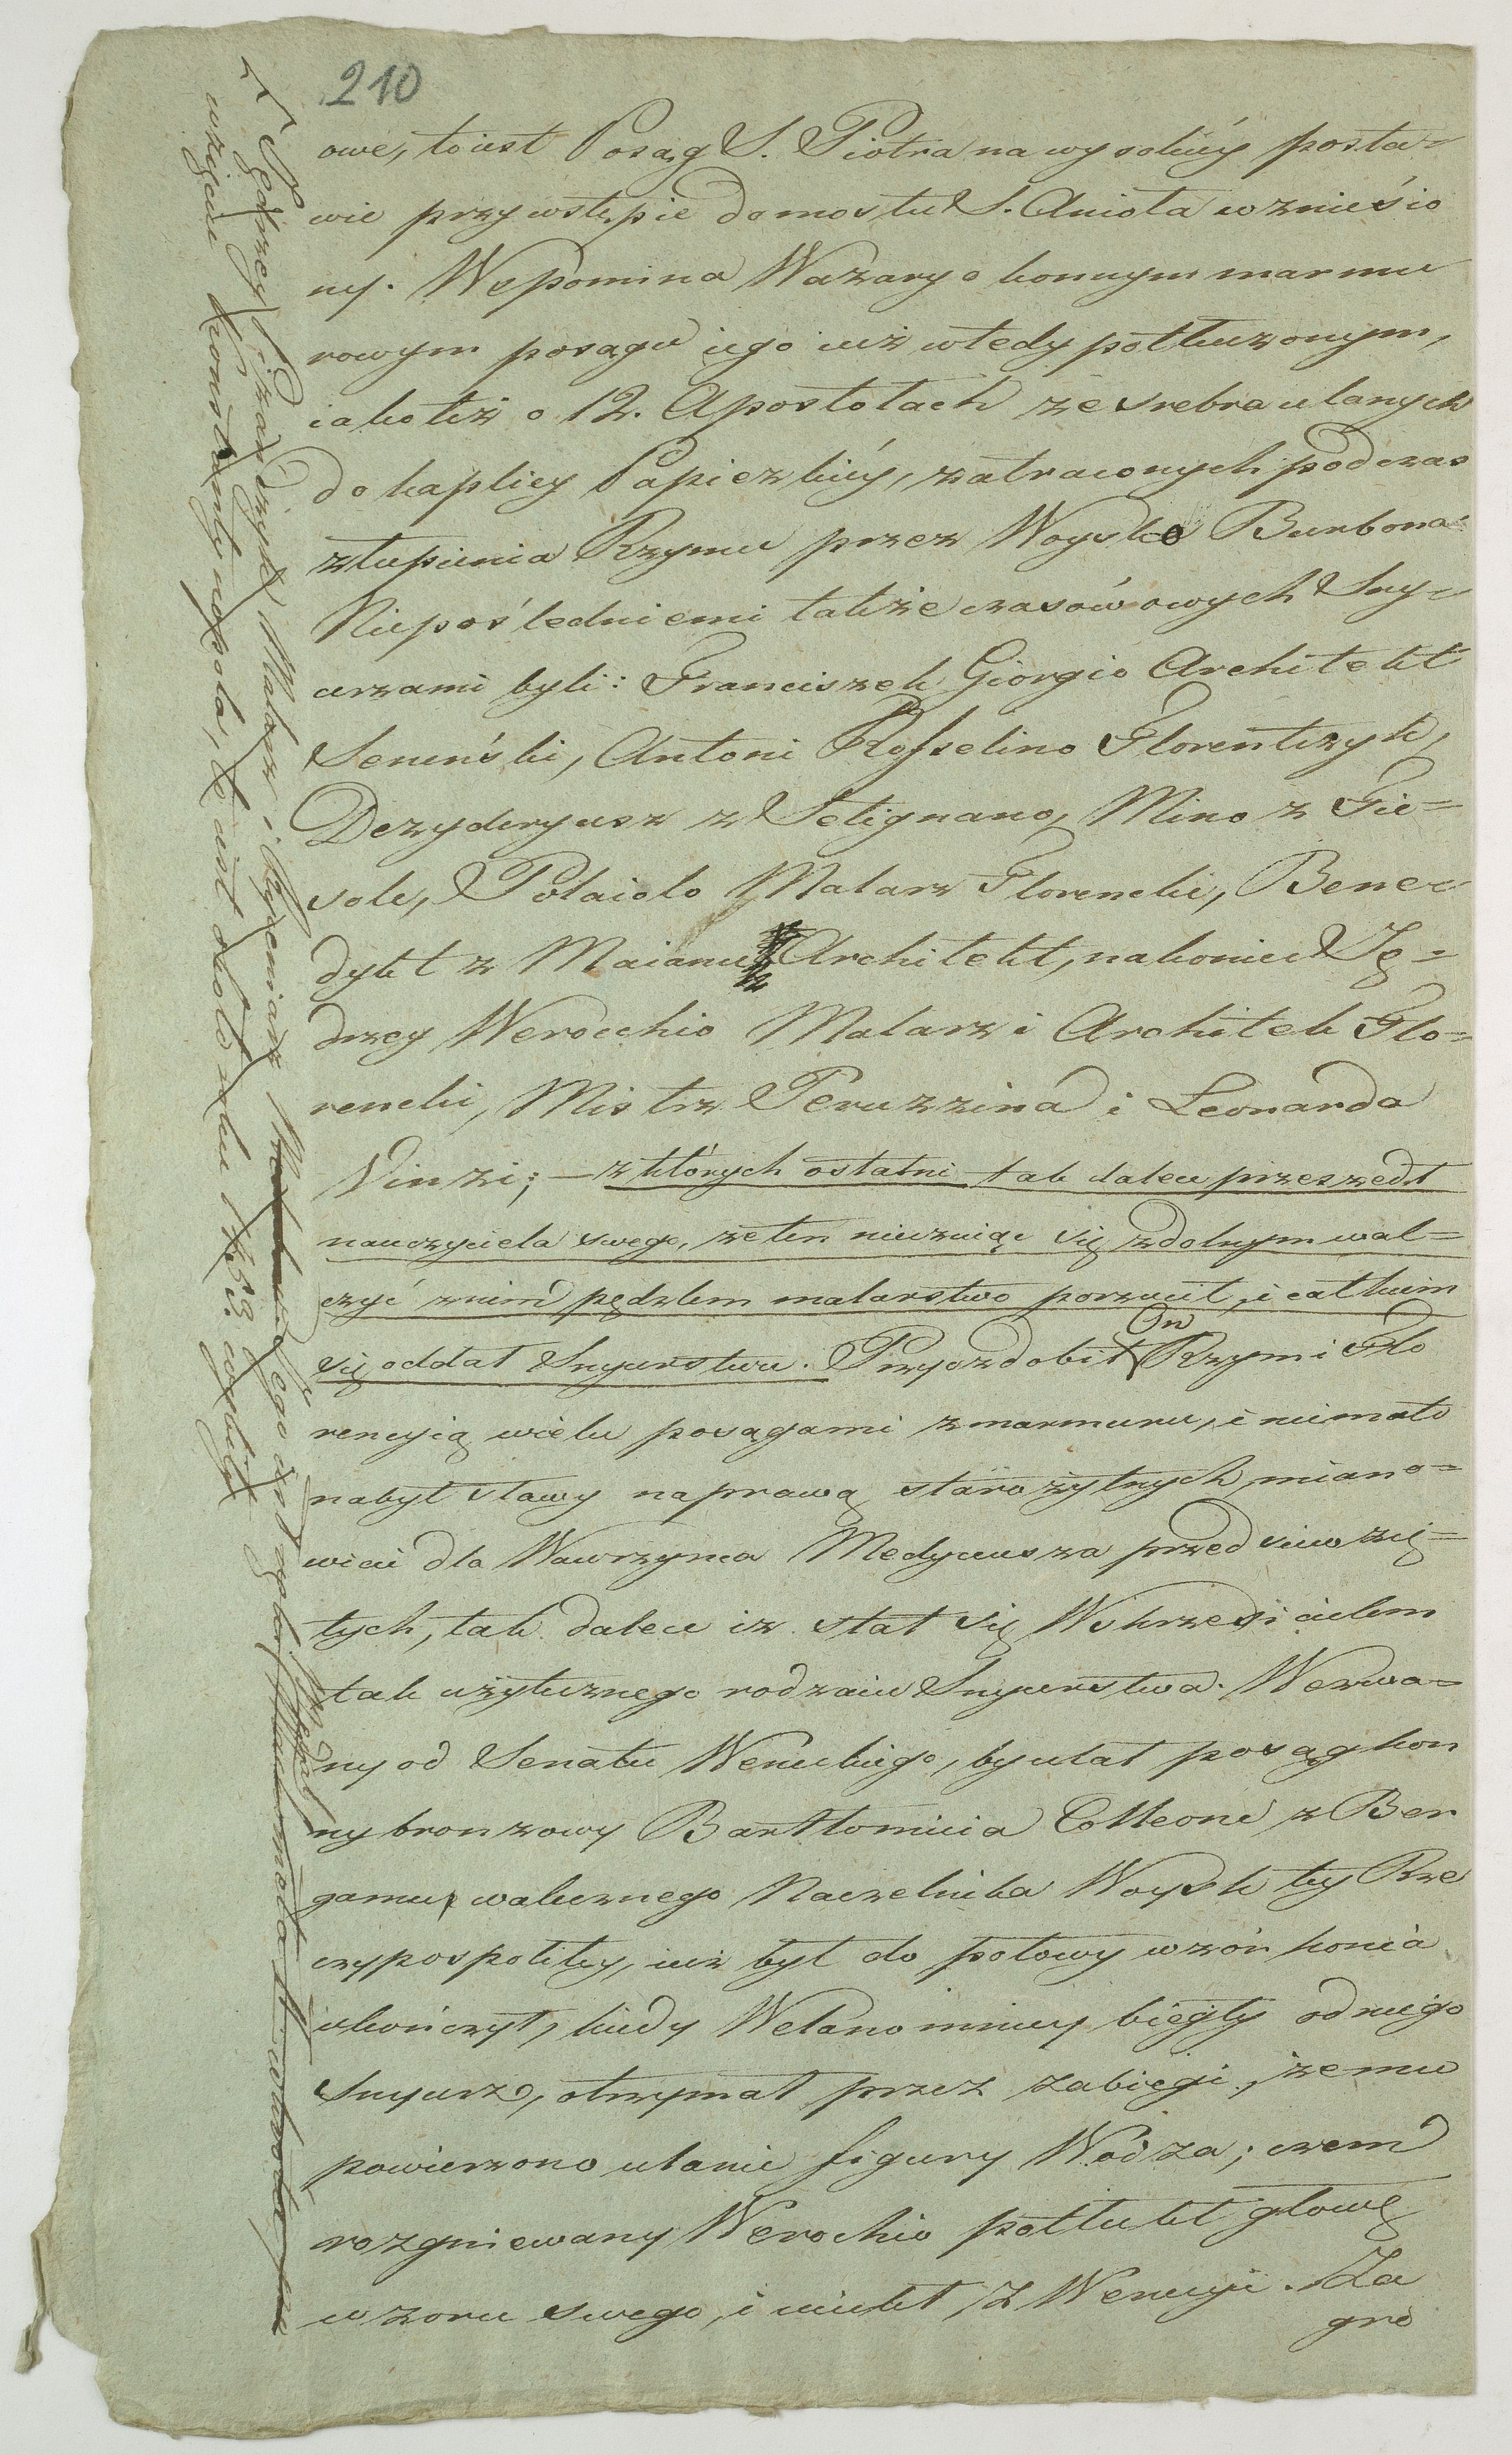 210
owe, to iest Posąg S. Piotra na wysokiéy posta-
wie przy wstępie do mostu S. Anioła wznieśio
ny. Wspomina Wazary o konnym marmu
rowym posągu iego iuż wtedy potłuczonym,
iako też o 12. Apostołach ze srebra ulanych
do kaplicy Papiezkiéy, zatraconych podczas
złupienia Rzymu przez Woysko Burbona.
Niepośledniemi także czasów owych Sny-
cerzami byli: Franciszek Giorgio Architekt
Seneński, Antoni Rosselino Florentczyk,
Dezyderyusz z Setignano, Mino z Fie=
sole, Polaiolo Malarz Florencki, Bene-
dykt z Maianu Architekt, nakoniec Ję=
drzey Werocchio Malarz i Architek Flo=
rencki, Mistrz Peruzzina i Leonarda
Vinzi; — z których ostatni tak dalece przeszedł
nauczyciela swego, że ten nieczuiąc się zdolnym wal=
czyć z nim pędzlem malarstwo porzucił, i całkiem
się oddał Snycerstwu. Przyozdobił On Rzym i Flo
rencyią wielu posągami z marmuru, i niemało
nabył sławy naprawą starożytnych, miano=
wicie dla Wawrzynca Medyceusza przedsiewzię=
tych, tak dalece iż stał się Wskrzesicielem
tak użytecznego rodzaiu Snycerstwa. Wezwa=
ny od Senatu Weneckiego, by ulał posąg kon
ny bronzowy Bartłomieia Colleone z Ber
gamu, walecznego Naczelnika Woysk téy Rze
czypospolitéy, iuż był do połowy wzór konia
ukończył, kiedy Welano mniey biegły od niego
Snycerz, otrzymał przez zabiegi, że mu
powierzono ulanie figury Wodza; czem
rozgniewany Werochio potłukł głowę
wzoru swego, i uciekł z Wenecyi. Za
gro
Jędrzey Pizańczyk Malarz i
wzięciu Konstantynopola, to iest około roku 1453. wybity